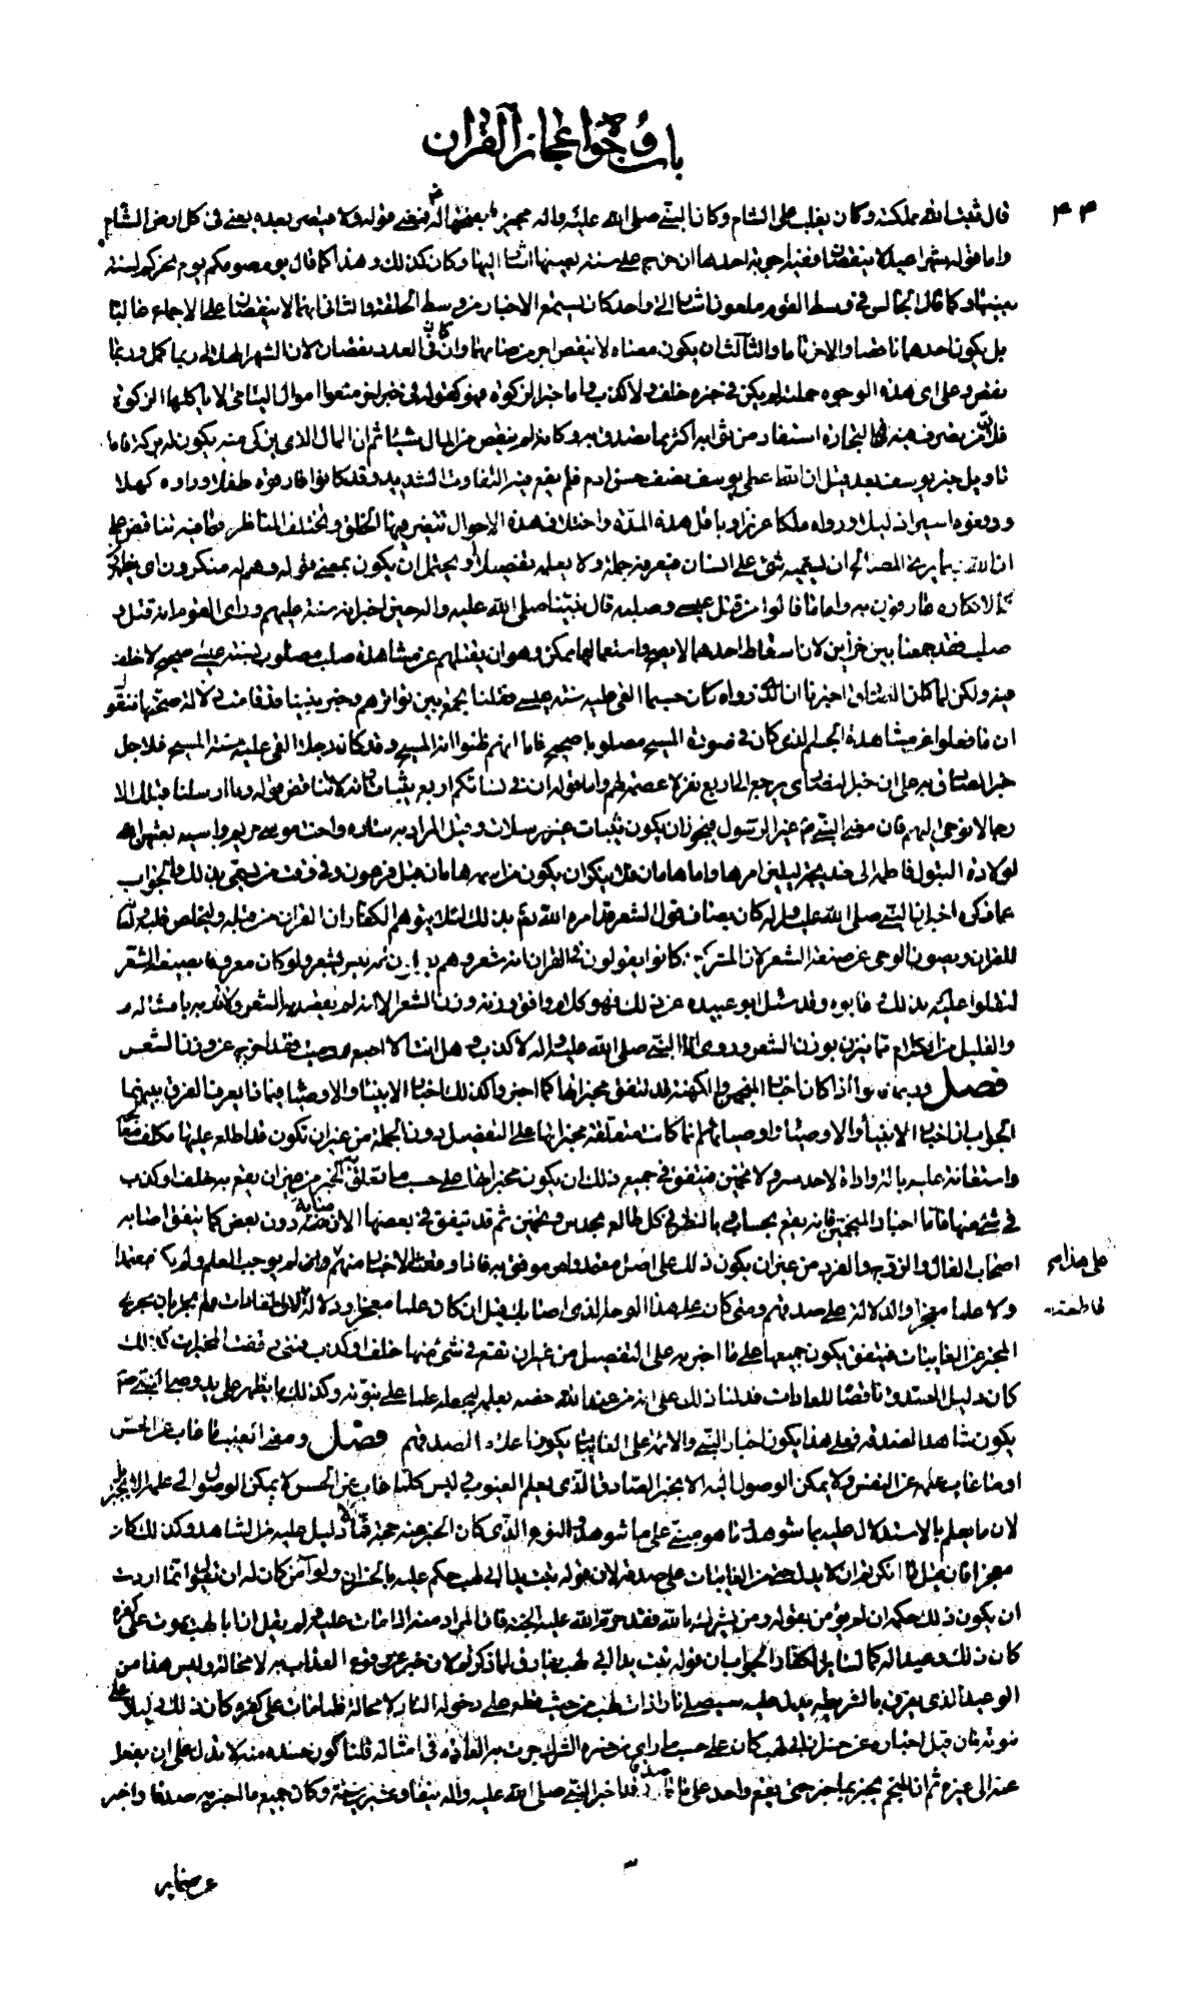 باب وجوه اعجاز القرآن
۴۴
قال ثبت الله مملكته وكان يغلب على الشام وكان النبي صلى الله عليه واله فمعنى قوله ولا قيصر بعده يعني في كل ارض الشام
واما قوله شهرا عيد لا ينقصان ففيه اجوبة احدها ان خرج على سنة بعينها اشار اليها وكان كذلك وهذا كما قال يوم صومكم يوم نحركم لسنة
بعينها وكما قال الجالس في وسط القوم ملعون اشار الى واحد كان يستمع الاخبار من وسط الحلقة والثاني انهما لا ينقصان على الاجماع غالبا
بل يكون احدهما ناقصا والاخر تاما والثالث ان يكون معناه لا ينقص اجر من صامهما وان كان في العدد نقصان لان الشهر الهلالي ربما كمل وربما
نقص وعلى اى هذه الوجوه حملته لم يكن في خبره خلف ولا كذب واما خبر الزكوة فهو كقوله في خبر اخر متعوا اموال اليتامى لا ياكلها الزكوة
التجارة استفاد من ثوابه اكثر مما تصدق به وكانه لم ينقص من المال شيئا ثم ان المال الذى يزكى منه يكون له بركة فاما
تاويل خبر يوسف بعد قيل ان الله اعطى يوسف نصف حسن ادم فلم يقع فيه التفاوت الشديد وقد كانوا فارقوه طفلا وراوه كهلا
ودفعوه اسيرا ذليلا وراوه ملكا عزيزا وباقل هذه المدة واختلاف هذه الاحوال تتغير فيها الخلق وتختلف المناظر فما فيه تناقض على
ان الله المصالح ان يعمى شئ على انسان فيعرفه جملة ولا يعلمه تفصيلا ويحتمل ان يكون بمعنى قوله وهم له منكرون اى
الانكار عارفون به واما ما قالوا من قتل عيسى وصلبه قال نبينا صلى الله عليه واله حين اخبر انه شبه عليهم وراى القوم انه قتل و
صلب فقد جمعنا بين خبرين لان اسقاط احدهما لا يصح واستعمالهما ممكن وهو ان نقلهم عن مشاهدة صلب مصلوب يشبه عيسى صحيح لا خلف
فيه ولكن لما كان اخبرنا ان الذى راوه كان جسما القى عليه شبه عيسى فقلنا نجمع بين تواترهم وخبر نبينا قد قامت دلالة صحتها فنقول
ان ما فعلوا من مشاهدة الجسم الذى كان في صورة المسيح مصلوبا صحيح فاما انهم ظنوا انه المسيح وقد كان رجلا القى عليه شبه المسيح فلاجل
خبر الصادق به على ان خبر النصارى يرجع الى اربع نفر لا عصمة لهم واما قوله ان في نسائكم اربع نبيات فانه لا تناقض قوله وما ارسلنا قبلك الا
رجالا نوحى اليهم فان معنى النبي غير الرسول فيجوز ان يكون نبيات غير مرسلات وقيل المراد به سارة واخت موسى ومريم واسية بعثهن الله
لولادة البتول فاطمة الى خديجة ليلين امرها واما هامان فلا ينكر ان يكون من اسمه هامان قبل فرعون وفي وقته من يسمى بذلك والجواب
عما ذكره اخيرا النبي صلى الله عليه واله كان يعاف قول الشعر قد امره الله تعالى بذلك لئلا يتوهم الكفار ان القران من قبله وليخلص قلبه ولسانه
للقران ويصون الوحى عن صنعة الشعر لان المشركين كانوا يقولون في القران انه شعر وهم يعلمون انه ليس بشعر ولو كان معروفا بصنعة الشعر
لنقموا عليه بذلك وعابوه وقد سئل ابو عبيدة عن ذلك فقال هو كلام وافق وزنه وزن الشعر الا انه لم يقصد به الشعر ولا قرن به بامثاله و
والقليل من الكلام مما يتزن بوزن الشعر وروى انا النبي صلى الله عليه واله لا كذب وهل انت الا اصبع دميت فقد اخرجه عن وزن الشعر
فصل وربما قالوا اذا كان اخبار المنجمين والكهنة قد تتفق مخبراتها كما اخبروا كذلك اخبار الانبياء والاوصياء فبماذا يعرف الفرق بينهما
الجواب ان اخبار الانبياء والاوصياء واوصيائهم انما كانت متعلقة مخبراتها على التفصيل دون الجملة من غير ان تكون قد اطلع عليها متكلف
واستعانة عليه بالة واداة لاحدس ولا تخمين فيتفق في جميع ذلك ان يكون مخبراتها على حسب ما تعلق به الخبر من غير ان يقع به خلف او كذب
في شئ منها فاما اخبار المنجمين فانه يقع بحساب وبالنظر في كل طالع بحدس وتخمين ثم قد تتفق في بعضها الاصابة دون بعض كما يتفق اصابة
اصحاب الفال والزوج والفرد من غير ان يكون ذلك على اصل معتمد وامر موثوق به فاذا وقعت الاخبار منهم على هذا لم يوجب العلم ولم يكن معتمدا
على هذا لم
ولا علما معجزا والدلالة على صدقهم ومتى كان على هذا الوجه الذى اصاب في الكل كان علما معجزا ودلالة قاطعة لان العادات لم تجر بان يجرى
قاطعة
المخبر عن الغايبات فيتفق يكون جميعها على ما اخبر به على التفصيل من غير ان يقع في شئ منها خلف او كذب فمتى وقعت المخبرات كذلك
كان دليل الصدق ناقضا للعادات فدلنا ذلك على انه من عند الله خصه بعلمه ليجعله علما على نبوته وكذلك ما يظهر على يد وصى النبي حتى
يكون شاهد الصدقه فعلى هذا يكون اخبار النبي والائمة على الغايبات يكون اعلام الصدقهم فصل ومعنى الغيب ما غاب عن الحس
او ما غاب علمه عن النفس ولا يمكن الوصول اليه الا بخبر الصادق الذى يعلم الغيوب وليس كلما غاب عن الحس لا يمكن الوصول الى علمه الا بخبر
لان ما يعلم بالاستدلال عليه بما شوهد ما هو مبنى على ما شوهد والنوع الذى كان الخبر عنه حجة مما لا دليل عليه من الشاهد وكذلك كان
معجزا فان قيل ما انكرتم ان لا يدل خبره عن الغايبات على صدقه لان قوله تبت يدا ابى لهب حكم عليه بالخسران ولو امن كان له ان يقول انما اردت
ان يكون ذلك حكمه ان لم يؤمن بقوله ومن يشرك بالله فقد حرم الله عليه الجنة فان المراد منه اذا مات عليه ثم لم يقل ان ابا لهب يموت على كفره
كان ذلك وعيدا له كما لسائر الكفار الجواب ان قوله تبت يدا ابى لهب يفارق لما ذكرتم لانه خبر عن وقوع العذاب به لا محالة وليس هذا من
الوعيد الذى يعرف بالشريطة يدل عليه سيصلى نارا ذات لهب من حيث قطع على دخوله النار لا محالة فلما مات على كفره كان ذلك دليلا على
نبوته فان قيل اخباره عن حال ابى لهب كان على حسب ما راى من خبره الشرك جرت به العادة في امثاله قلنا كون حسده منه لا يدل على ان يفعل
عنه الى غيره ثم ان المنجم يخبر بما اخبر حتى يقع واحد على ما قد اخبر النبي صلى الله عليه واله بنيفا وعشرين سنة وكان جميع ما اخبر به صدقا واخبر
عن ضماير